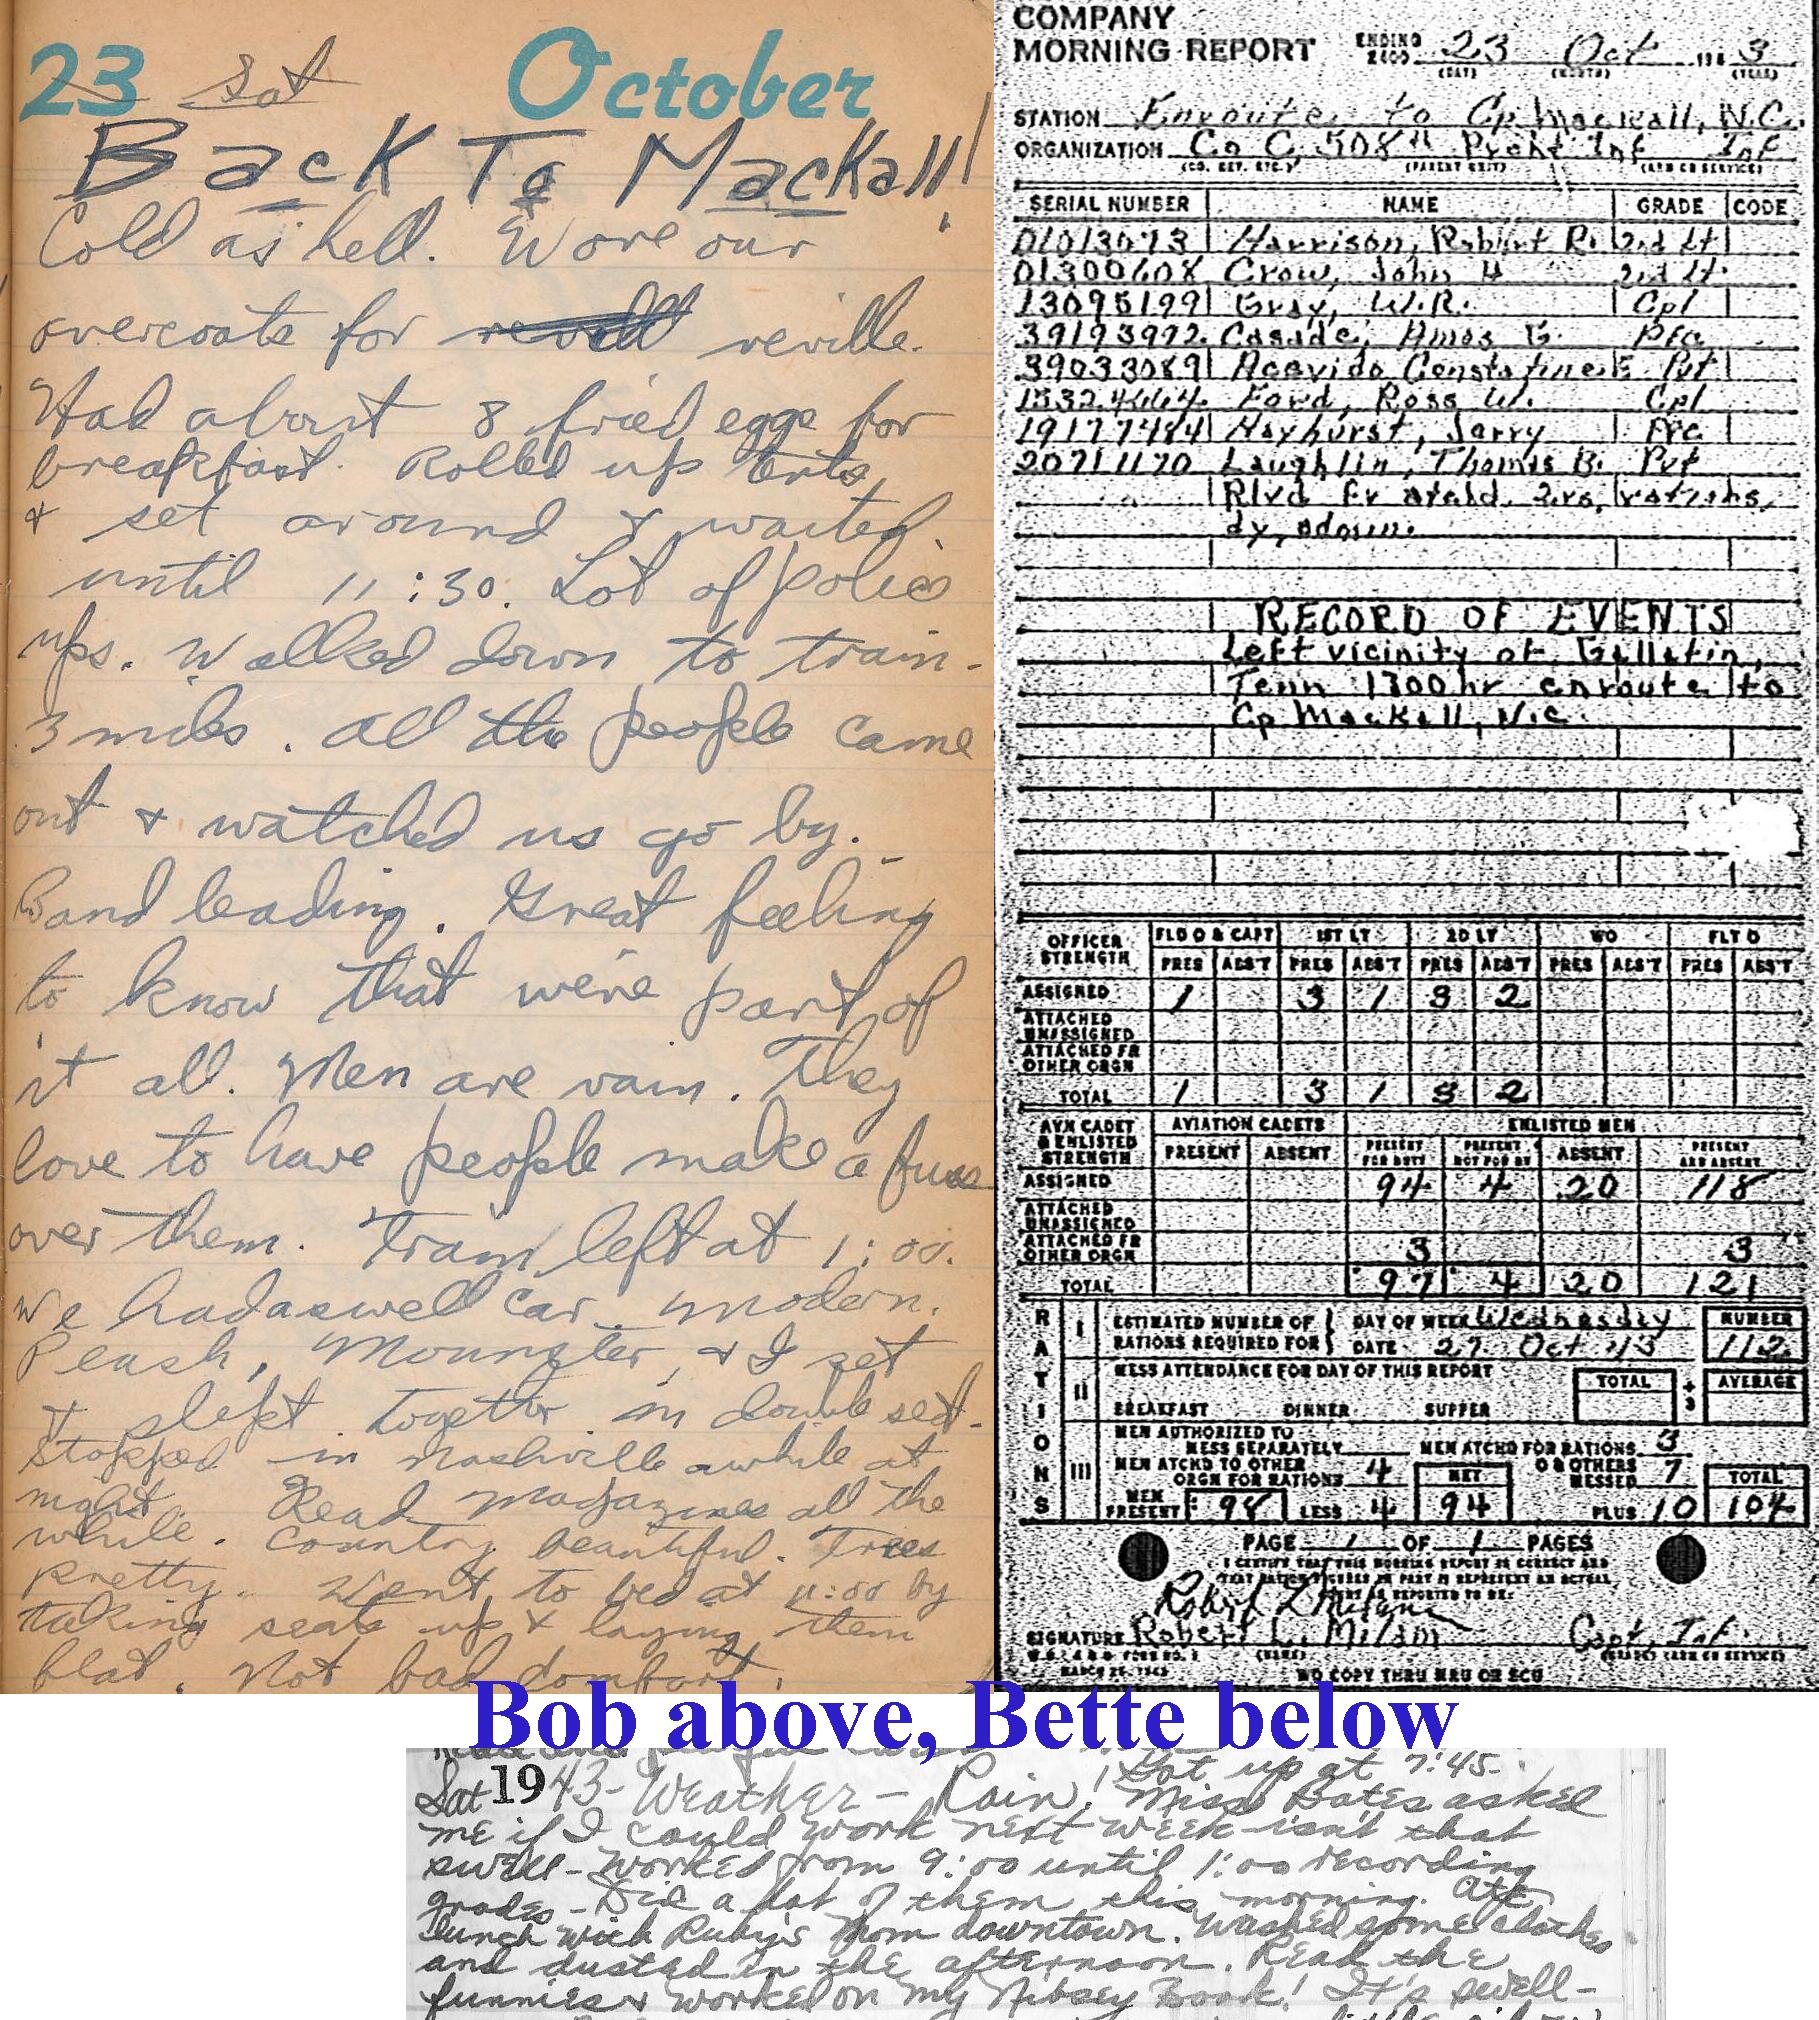 23 Sat October
Back To Mackall!
Cold as hell. Wore our
overcoats for reville.
Had about 8 fried eggs for
breakfast. Rolled up tents
& set around & waited
until 11:30. Lot of police
ups. Walked down to train -
3 miles. All the people came
out & watched us go by.
Band leading. Great feeling
to know that we're part of
it all. Men are vain. They
love to have people make a fuss
over them. Train left at 1:00.
We had a swell car. Modern.
& I set
& slept together in double seat.
Stopped in Nashville awhile at
night. Read magazines all the
while. Country beautiful. Trees
pretty. Went to bed at 11:00 by
taking seats up & laying them
flat. Not bad comfort.
COMPANY
MORNING REPORT ENDING 2400 23 Oct 194 3
(DAY) (MONTH) (YEAR)
STATION Enroute to Cp Mackall, N.C.
ORGANIZATION Co C 508th Prcht Inf Inf
(CO. DET. ETC.) (PARENT UNIT) (ARM OR SERVICE)
SERIAL NUMBER NAME GRADE CODE
01013073 Harrison, Robert R. 2nd Lt
01300608 Crow, John H 2nd Lt
13095199 Gray, W.R. Cpl
39193992 Amos G. Pfc
39033089 Pvt
Ford, Ross W. Cpl
19177484 Hayhurst, Jerry Pfc
20711170 Laughlin, Thomas B. Pvt
Rlvd fr atchd rations,
dy, admin.
RECORD OF EVENTS
Left vicinity of Gallatin,
Tenn 1300 hr enroute to
Cp Mackall, N.C.
OFFICER STRENGTH FLD O & CAPT 1ST LT 2D LT WO FLT O
PRES ABS'T PRES ABS'T PRES ABS'T PRES ABS'T PRES ABS'T
ASSIGNED 1 3 1 3 2
ATTACHED UNASSIGNED
ATTACHED FR OTHER ORGN
TOTAL 1 3 1 3 2
AVN CADET & ENLISTED STRENGTH AVIATION CADETS ENLISTED MEN
PRESENT ABSENT PRESENT FOR DUTY PRESENT NOT FOR DY ABSENT PRESENT AND ABSENT
ASSIGNED 94 4 20 118
ATTACHED UNASSIGNED
ATTACHED FR OTHER ORGN 3 3
TOTAL 97 4 20 121
RATIONS
I ESTIMATED NUMBER OF RATIONS REQUIRED FOR DAY OF WEEK Wednesday NUMBER
DATE 27 Oct 43 112
II MESS ATTENDANCE FOR DAY OF THIS REPORT TOTAL ÷ 3 AVERAGE
BREAKFAST DINNER SUPPER
III MEN AUTHORIZED TO MESS SEPARATELY MEN ATCHD FOR RATIONS 3
MEN ATCHD TO OTHER ORGN FOR RATIONS 4 NET O & OTHERS MESSED 7 TOTAL
MEN PRESENT 98 LESS 4 94 PLUS 10 104
PAGE 1 OF 1 PAGES
I CERTIFY THAT THIS MORNING REPORT IS CORRECT AND
Robert L Milam
SIGNATURE Robert L. Milam Capt, Inf.
MARCH 25, 1943 NO COPY THRU MRU OR SCU
Bob above, Bette below
Sat 1943 - Weather - Rain! Got up at 7:45.
Miss Bates asked
me if I could work next week isn't that
swell - Worked from 9:00 until 1:00 recording
grades - Did a lot of them this morning. Ate
lunch with Ruby's Mom downtown. Washed some clothes
and dusted in the afternoon. Read the
funnies & worked on my Book! It's swell -